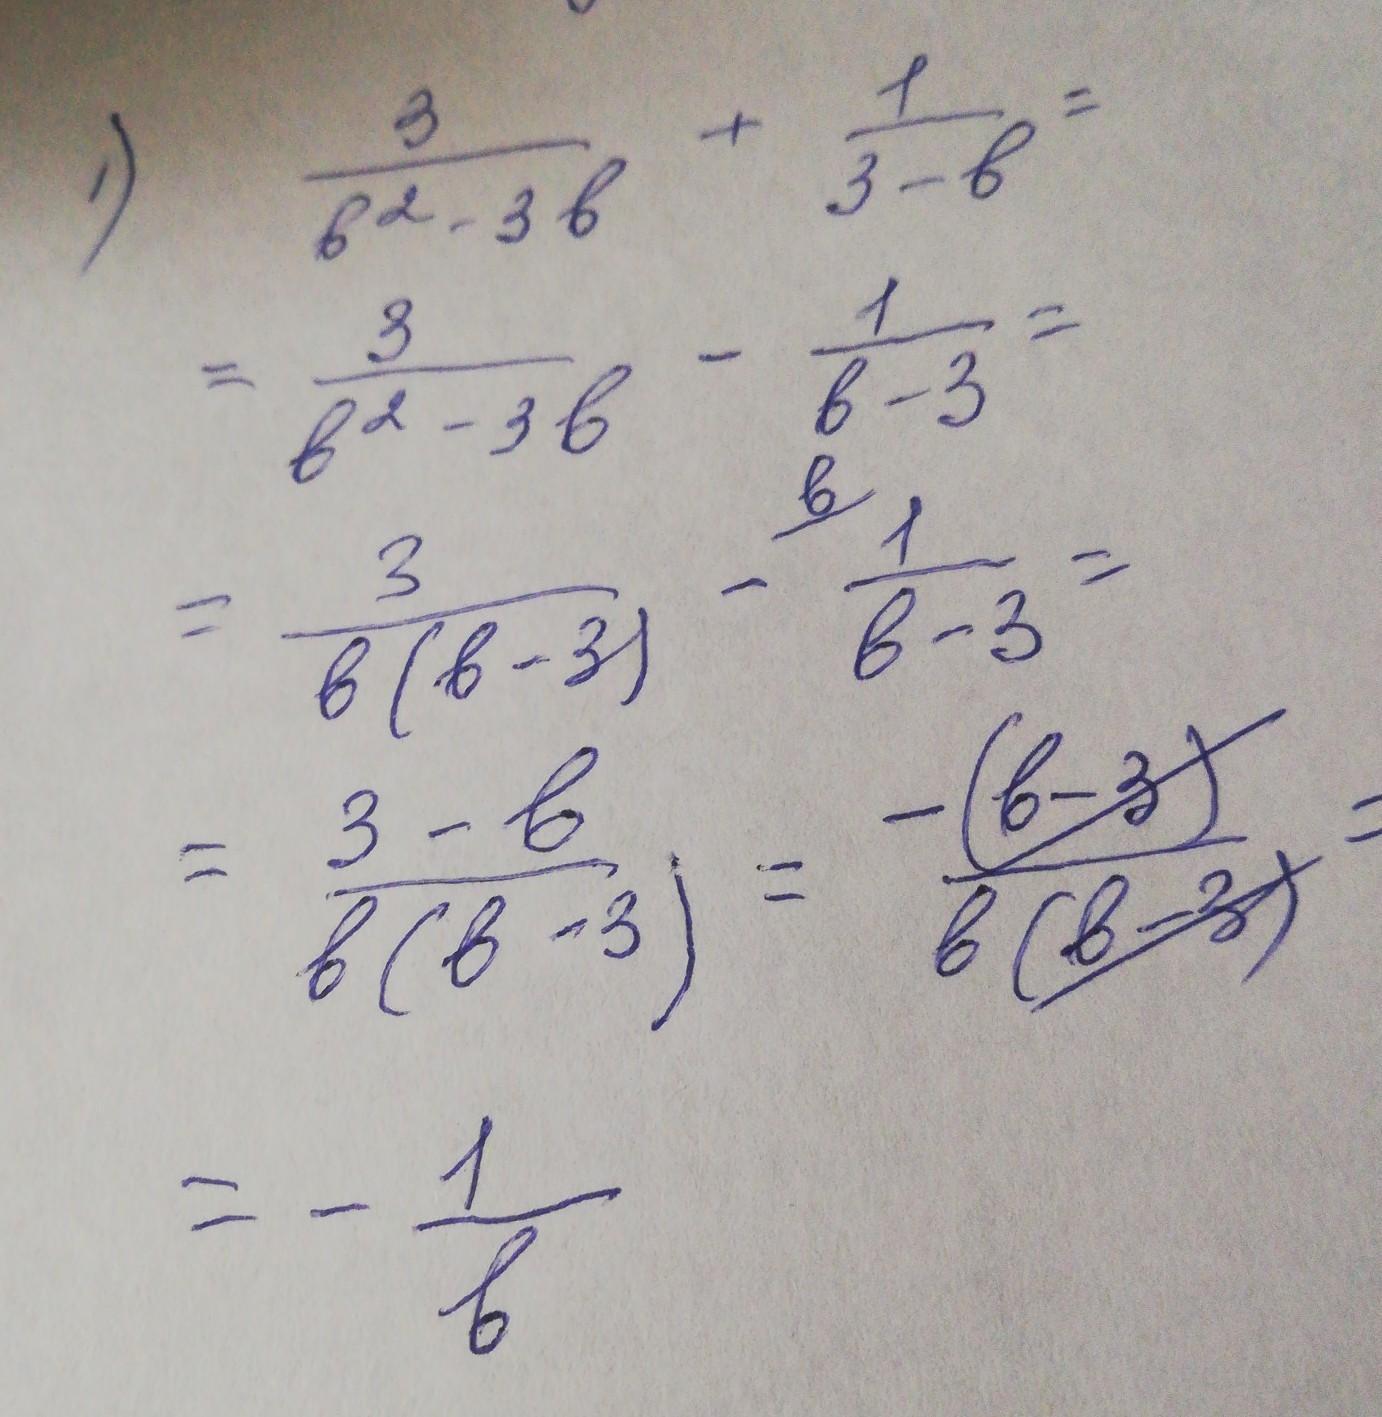 1) 3/(b² - 3b) + 1/(3 - b) =
= 3/(b² - 3b) - 1/(b - 3) =
= 3/(b(b - 3)) - b/ 1/(b - 3) =
= (3 - b)/(b(b - 3)) = -(b - 3)/(b(b - 3)) =
= - 1/b